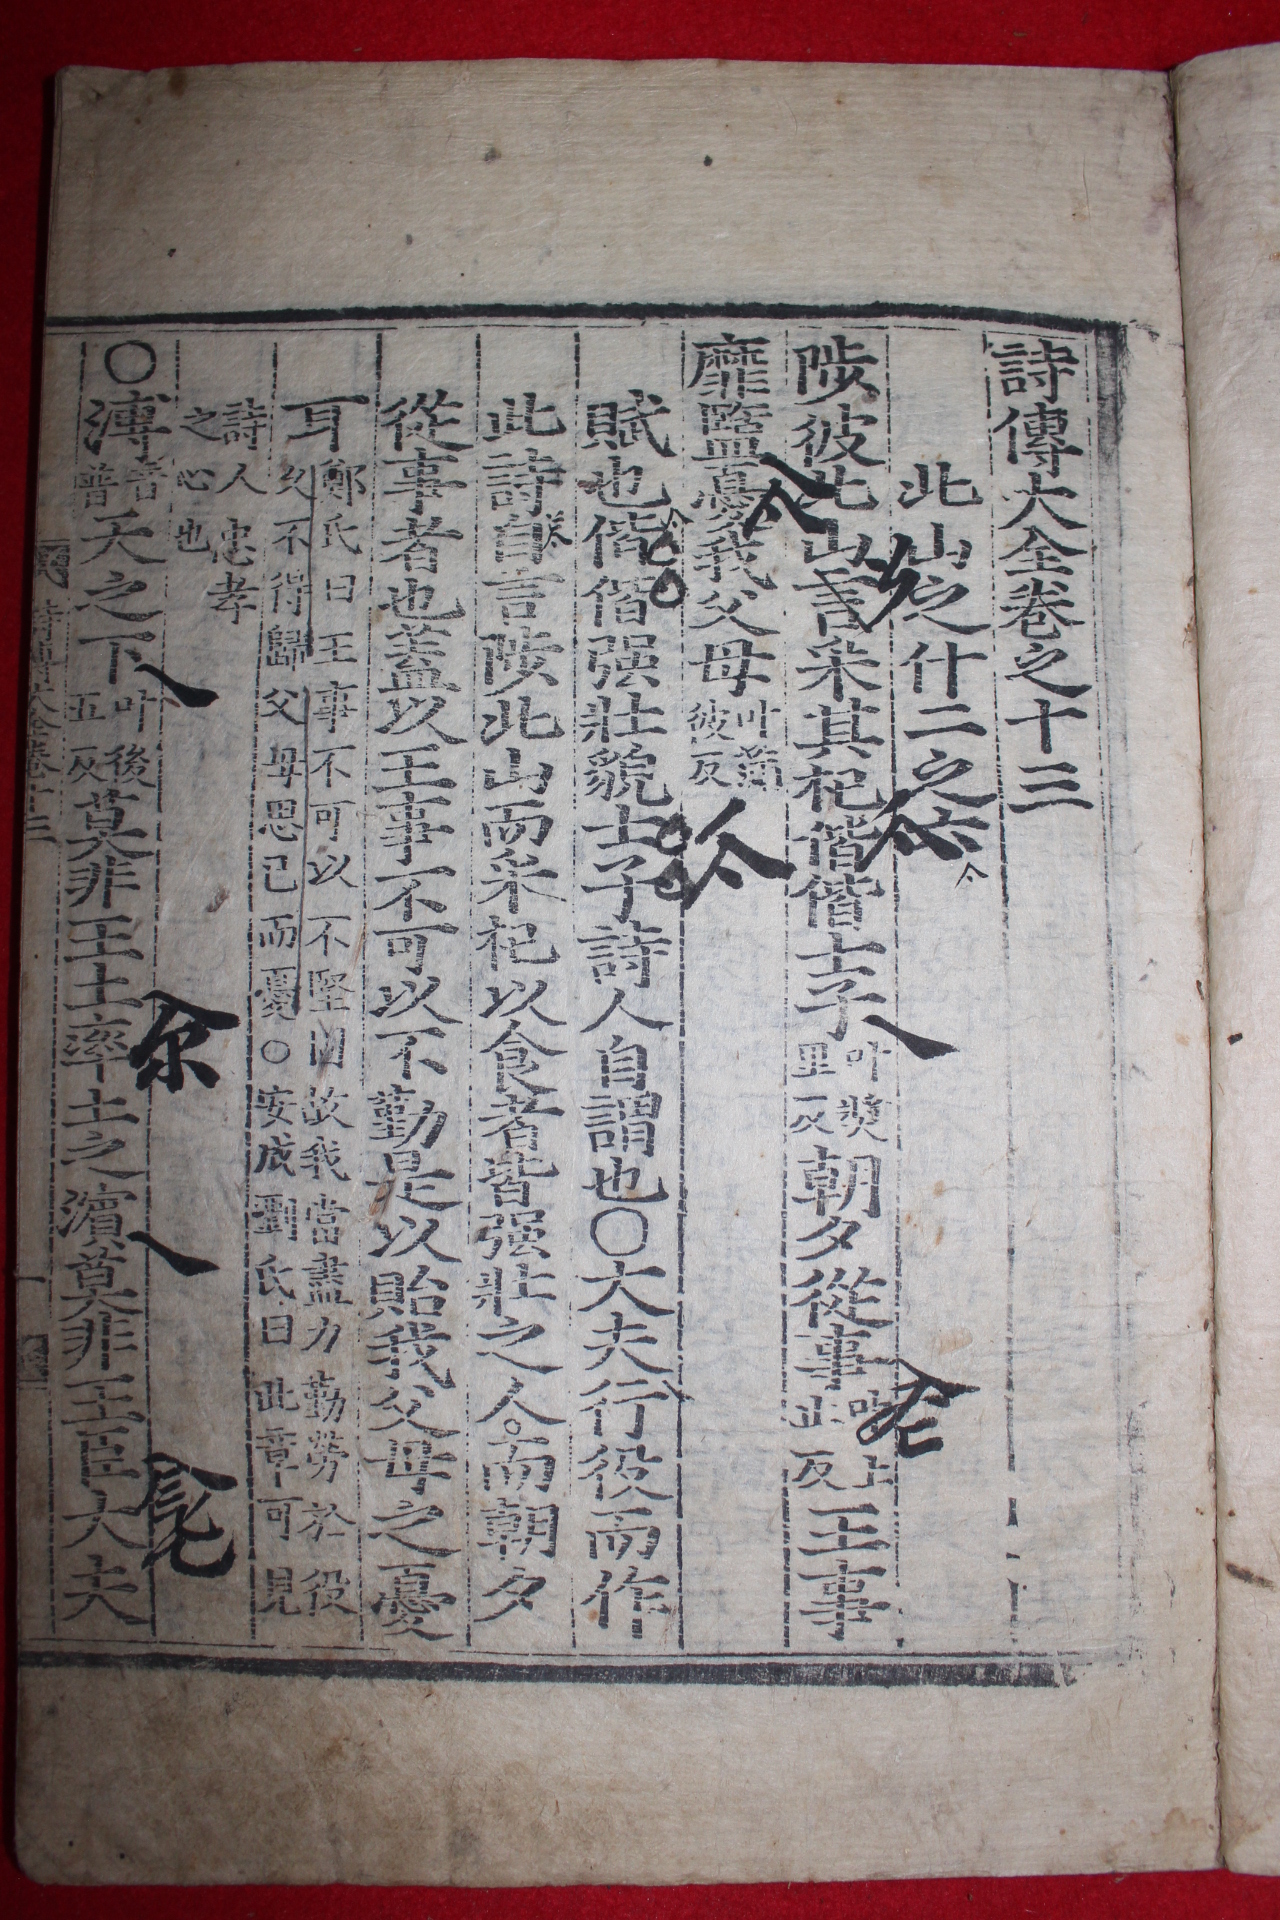 詩傳大全卷之十三
北山之什二之六
陟彼北山言采其杞偕偕士子叶獎里反朝夕從事叶上止反王事
靡盬憂我父母叶滿彼反
賦也偕偕强壯貌士子詩人自謂也〇大夫行役而作
此詩自言陟北山而采杞以食者皆强壯之人而朝夕
從事者也蓋以王事不可以不勤是以貽我父母之憂
耳鄭氏曰王事不可以不堅固故我當盡力勤勞於役
久不得歸父母思己而憂〇安成劉氏曰此章可見
詩人忠孝
之心也
〇溥音普天之下叶後五反莫非王土率土之濱莫非王臣大夫
詩傳大全卷十三
一